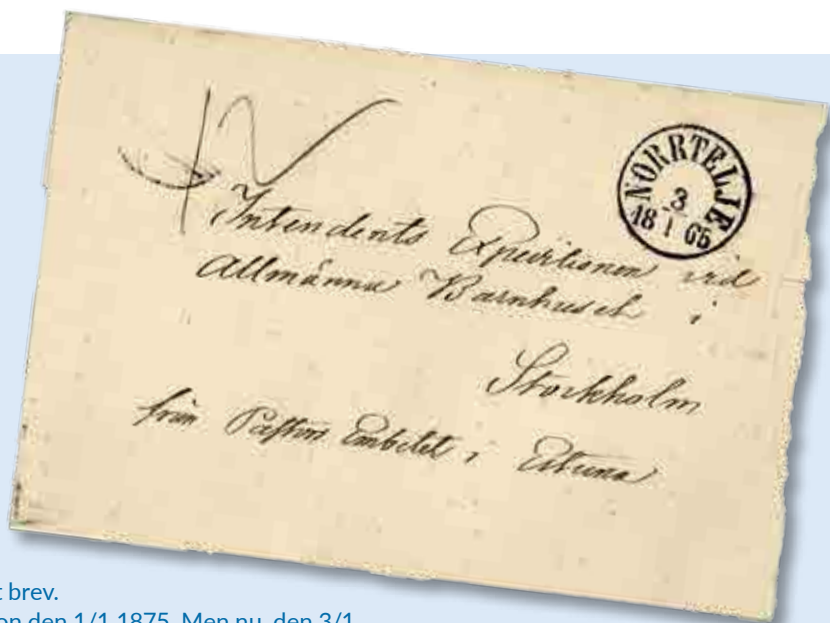 12
NORRTELJE
3
18 1 65
Intendents Expeditionen vid
Allmänna Barnhuset i
Stockholm
från Pastors Embetet i Estuna
t brev.
on den 1/1 1875. Men nu, den 3/1